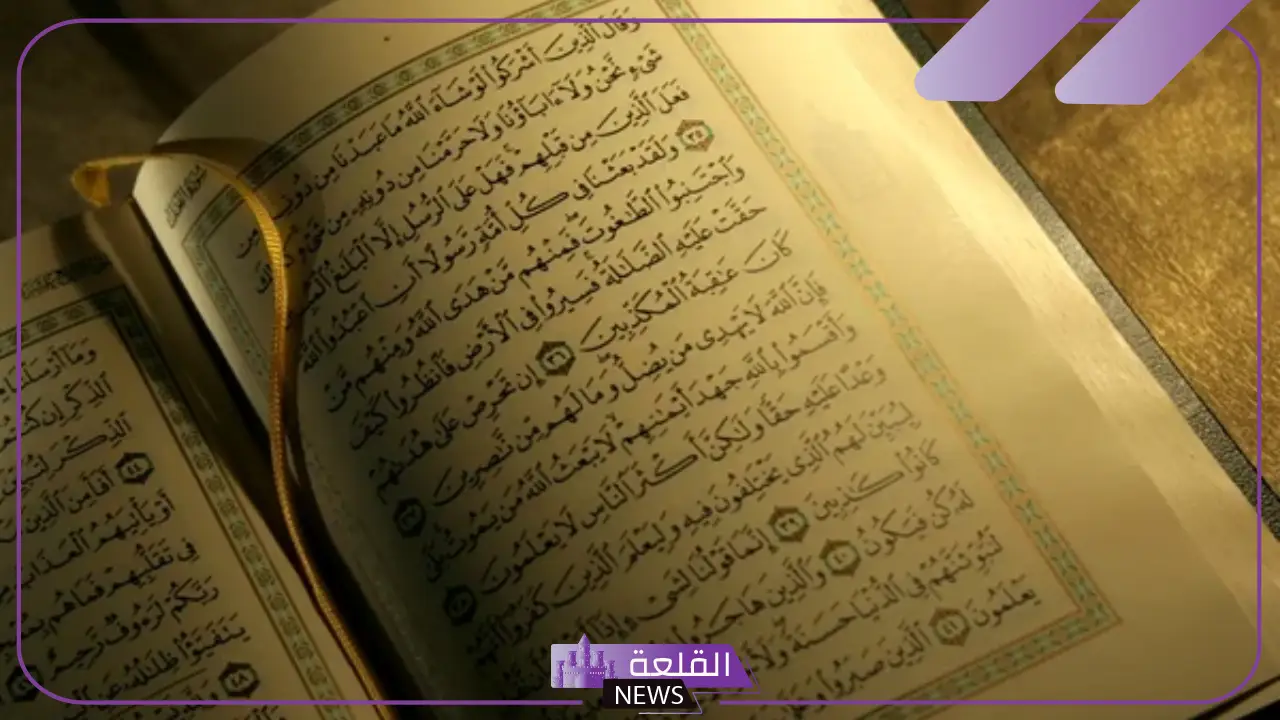 وَقَالَ ٱلَّذِينَ أَشْرَكُوا۟ لَوْ شَآءَ ٱللَّهُ مَا عَبَدْنَا مِن دُونِهِۦ مِن
شَىْءٍ نَّحْنُ وَلَآ ءَابَآؤُنَا وَلَا حَرَّمْنَا مِن دُونِهِۦ مِن شَىْءٍ كَذَٰلِكَ
فَعَلَ ٱلَّذِينَ مِن قَبْلِهِمْ فَهَلْ عَلَى ٱلرُّسُلِ إِلَّا ٱلْبَلَٰغُ ٱلْمُبِينُ
٣٥ وَلَقَدْ بَعَثْنَا فِى كُلِّ أُمَّةٍ رَّسُولًا أَنِ ٱعْبُدُوا۟ ٱللَّهَ
وَٱجْتَنِبُوا۟ ٱلطَّٰغُوتَ فَمِنْهُم مَّنْ هَدَى ٱللَّهُ وَمِنْهُم مَّنْ
حَقَّتْ عَلَيْهِ ٱلضَّلَٰلَةُ فَسِيرُوا۟ فِى ٱلْأَرْضِ فَٱنظُرُوا۟ كَيْفَ
كَانَ عَٰقِبَةُ ٱلْمُكَذِّبِينَ ٣٦ إِن تَحْرِصْ عَلَىٰ هُدَىٰهُمْ
فَإِنَّ ٱللَّهَ لَا يَهْدِى مَن يُضِلُّ وَمَا لَهُم مِّن نَّٰصِرِينَ ٣٧
وَأَقْسَمُوا۟ بِٱللَّهِ جَهْدَ أَيْمَٰنِهِمْ لَا يَبْعَثُ ٱللَّهُ مَن يَمُوتُ بَلَىٰ
وَعْدًا عَلَيْهِ حَقًّا وَلَٰكِنَّ أَكْثَرَ ٱلنَّاسِ لَا يَعْلَمُونَ ٣٨
لِيُبَيِّنَ لَهُمُ ٱلَّذِى يَخْتَلِفُونَ فِيهِ وَلِيَعْلَمَ ٱلَّذِينَ كَفَرُوٓا۟ أَنَّهُمْ
كَانُوا۟ كَٰذِبِينَ ٣٩ إِنَّمَا قَوْلُنَا لِشَىْءٍ إِذَآ
لَهُۥ كُن فَيَكُونُ ٤٠ وَٱلَّذِينَ هَاجَرُوا۟
لَنُبَوِّئَنَّهُمْ فِى ٱلدُّنْيَا حَسَنَةً وَلَأَجْرُ
يَعْلَمُونَ ٤١ ٱلَّذِينَ صَبَرُوا۟ وَعَلَىٰ
وَمَآ أَرْسَلْنَا
ٱلذِّكْرِ إِن كُنتُمْ
ٱلذِّكْرَ لِتُبَيِّنَ
٤٤ أَفَأَمِنَ ٱلَّذِينَ
أَوْ يَأْتِيَهُمُ ٱلْعَذَابُ
فِى تَقَلُّبِهِمْ فَمَا هُم
رَبَّكُمْ لَرَءُوفٌ رَّحِيمٌ
يَتَفَيَّؤُا۟ ظِلَٰلُهُۥ عَنِ
٤٨
القلعة
NEWS